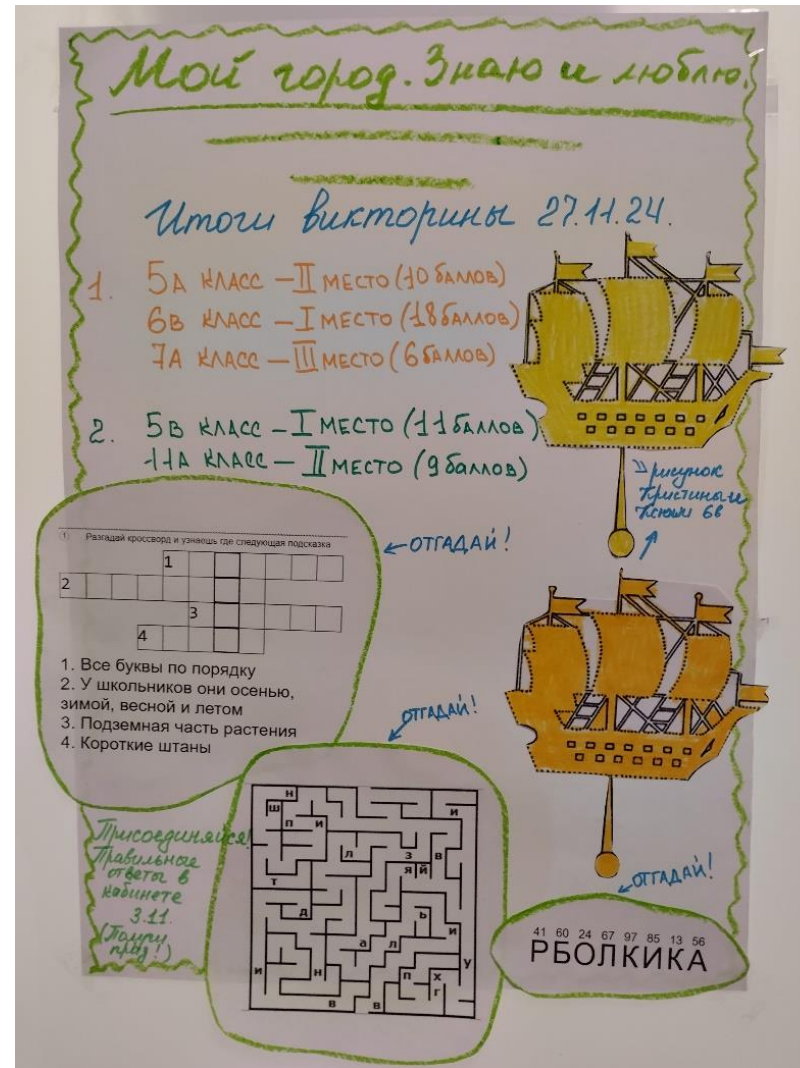 Мой город. Знаю и люблю.
Итоги викторины 27.11.24.
1. 5А класс – II место (10 баллов)
6В класс – I место (18 баллов)
7А класс – III место (6 баллов)
2. 5В класс – I место (11 баллов)
11А класс – II место (9 баллов)
рисунок
Кристины и
Ксюши 6В
① Разгадай кроссворд и узнаешь где следующая подсказка
1
2
3
4
1. Все буквы по порядку
2. У школьников они осенью,
зимой, весной и летом
3. Подземная часть растения
4. Короткие штаны
ОТГАДАЙ!
ОТГАДАЙ!
Присоединяйся!
Правильные
ответы в
кабинете
3.11.
н
ш и
п и
л з в
я й
т
д ь
и
а л
у
и н п х
г
в в
ОТГАДАЙ!
41 60 24 67 97 85 13 56
РБОЛКИКА